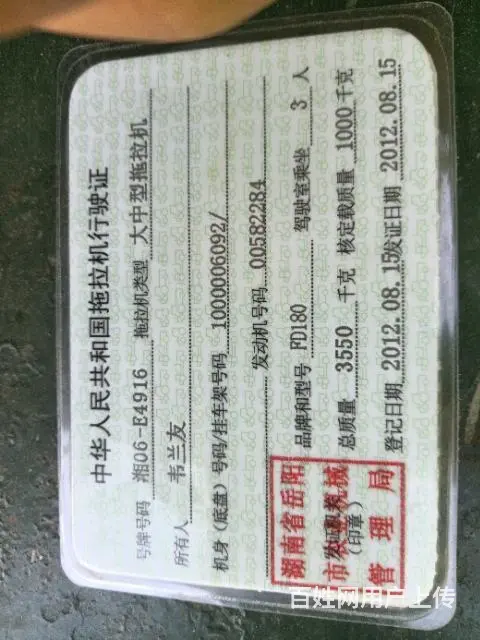 中华人民共和国拖拉机行驶证
号牌号码 湘06-E4916 拖拉机类型 大中型拖拉机
所有人 韦兰友
机身（底盘）号码/挂车架号码 1000006092/
发动机号码 00582284
品牌和型号 FD180 驾驶室乘坐 3 人
总质量 3550 千克 核定载质量 1000 千克
登记日期 2012.08.15 发证日期 2012.08.15
湖南省岳阳
市农业机械
管理局
发证机关
（印章）
百姓网用户上传